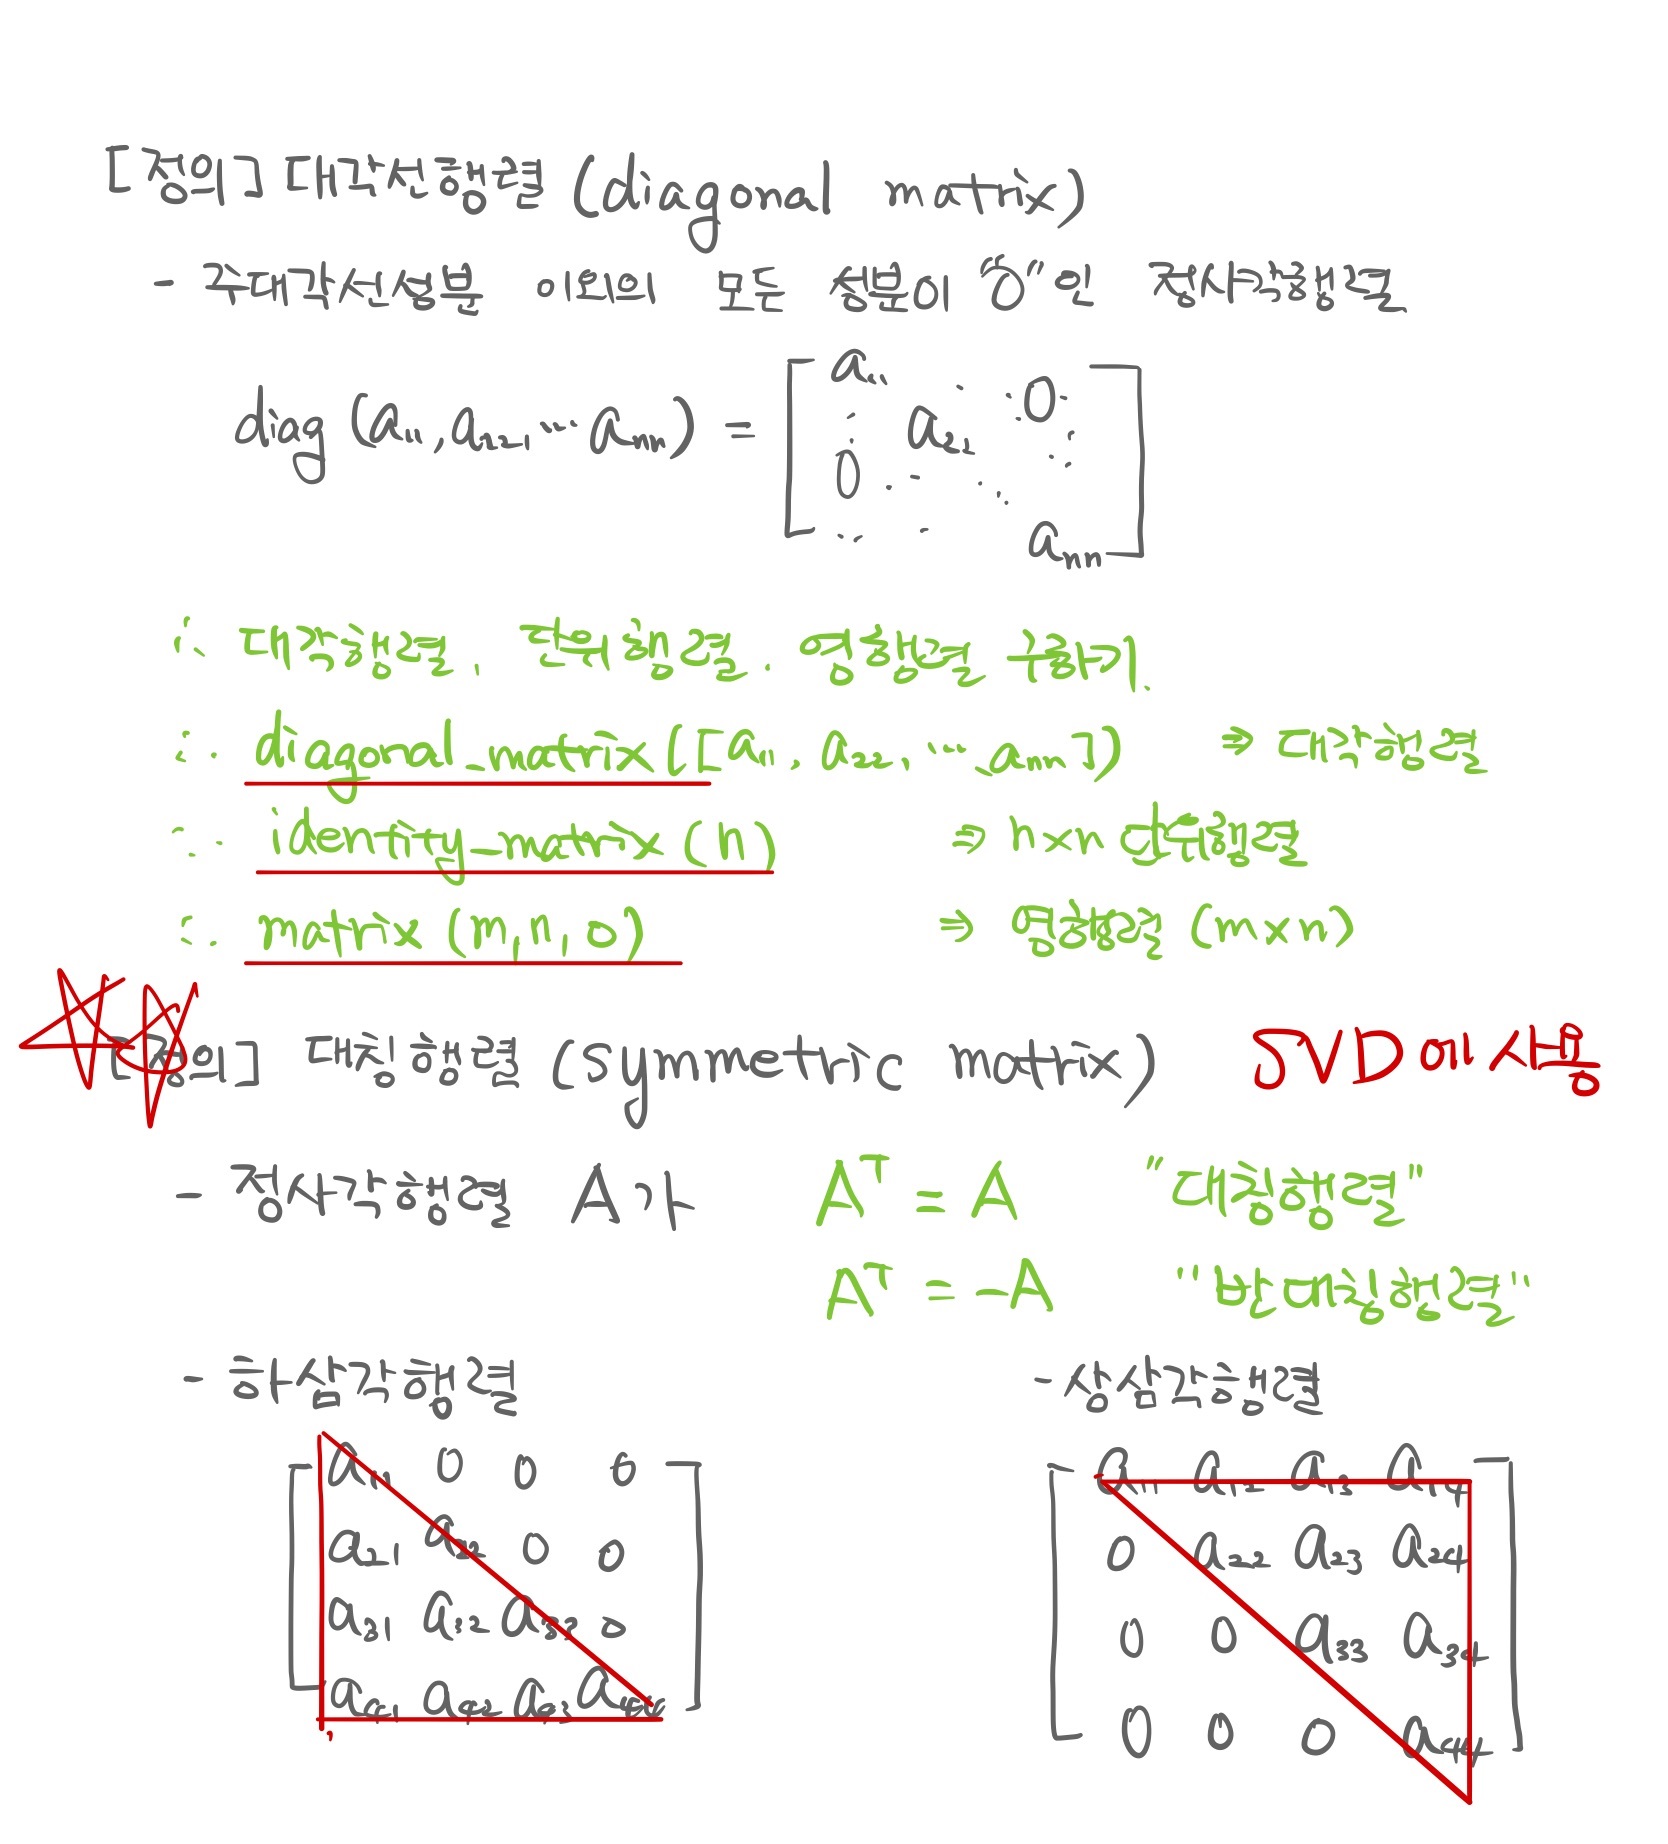 [정의] 대각선행렬 (diagonal matrix)
- 주대각선성분 이외의 모든 성분이 "0"인 정사각행렬
diag (a₁₁, a₂₂, ⋯ aₙₙ) = [a₁₁ ⋯ 0
⋮ a₂₂ ⋮
0 ⋯ ⋱
⋯ aₙₙ]
∴ 대각행렬, 단위행렬, 영행렬 구하기.
∴ diagonal_matrix([a₁₁, a₂₂, ⋯ aₙₙ]) ⇒ 대각행렬
∴ identity_matrix(n) ⇒ n×n 단위행렬
∴ matrix (m, n, 0) ⇒ 영행렬 (m×n)
[정의] 대칭행렬 (symmetric matrix) SVD에 사용
- 정사각행렬 A가 Aᵀ = A "대칭행렬"
Aᵀ = -A "반대칭행렬"
- 하삼각행렬 - 상삼각행렬
[a₁₁ 0 0 0 [a₁₁ a₁₂ a₁₃ a₁₄
a₂₁ a₂₂ 0 0 0 a₂₂ a₂₃ a₂₄
a₃₁ a₃₂ a₃₃ 0 0 0 a₃₃ a₃₄
a₄₁ a₄₂ a₄₃ a₄₄] 0 0 0 a₄₄]